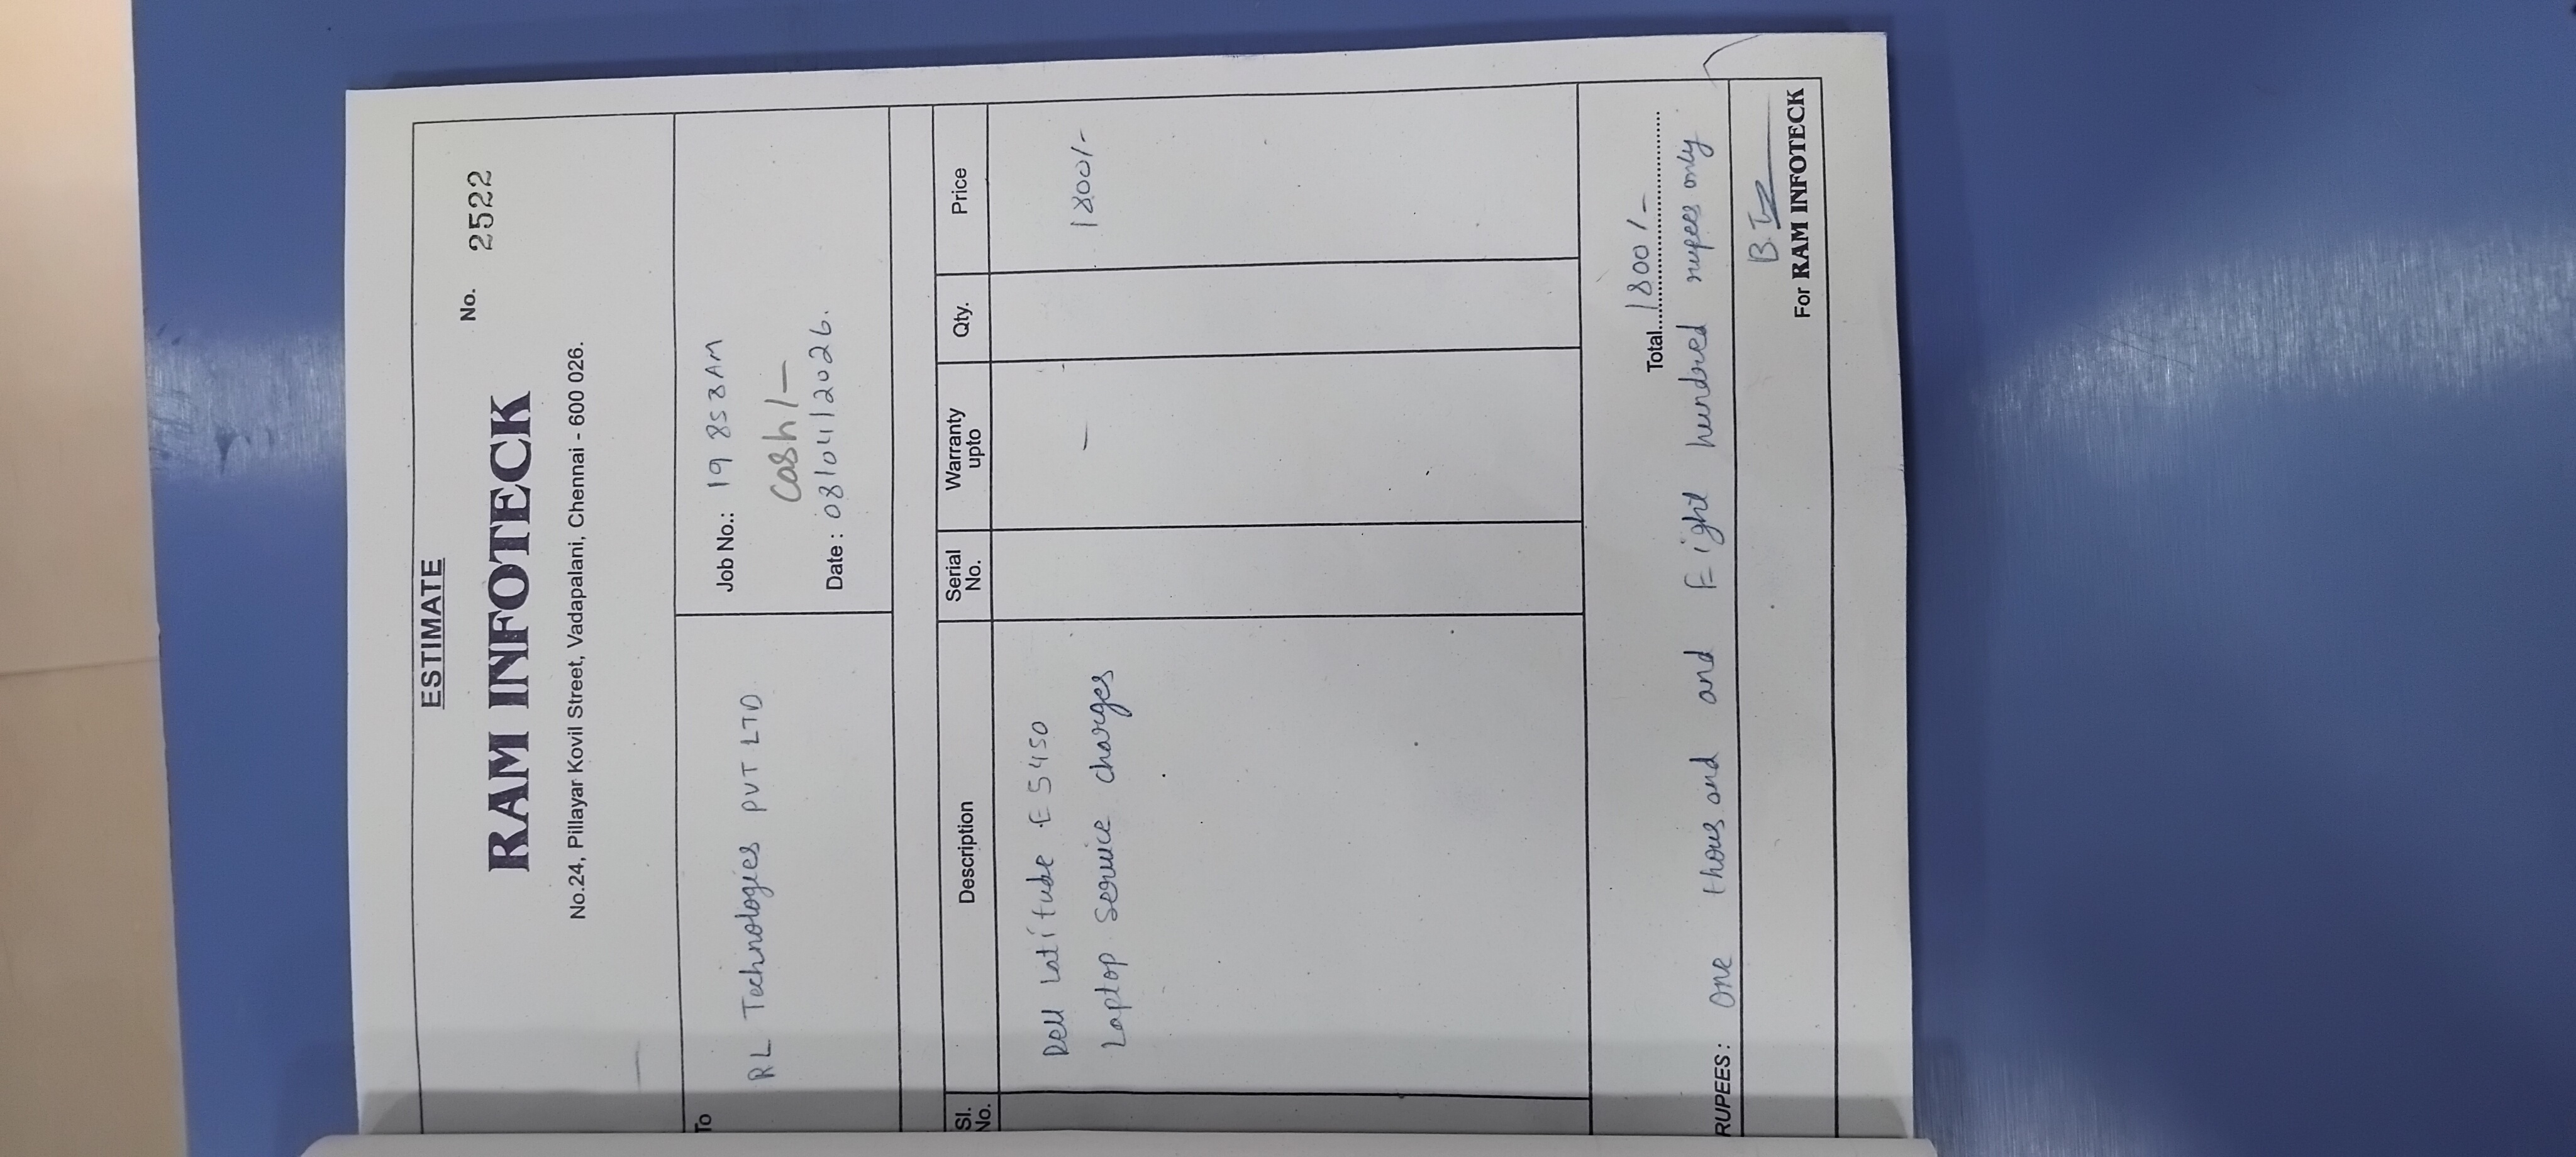 ESTIMATE
RAM INFOTECK
No. 2522
No.24, Pillayar Kovil Street, Vadapalani, Chennai - 600 026.
To
RL Technologies PVT LTD
Job No.: 19 853AM
Cash/-
Date : 08/04/2026.
Sl. No. Description Serial No. Warranty upto Qty. Price
Dell Latitude E5450
Laptop Service charges - 1800/-
Total....1800/-
RUPEES: One thousand and Eight hundred rupees only
For RAM INFOTECK